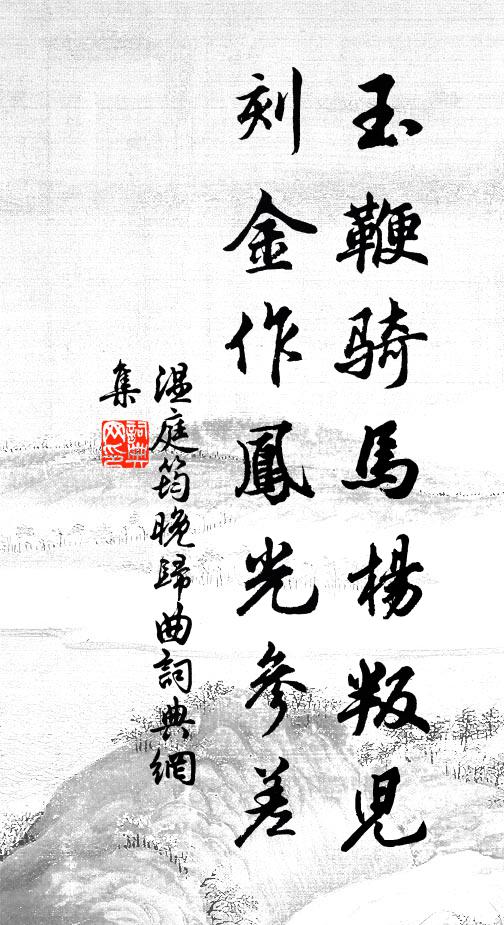 玉鞭骑馬楊叛兒
刻金作鳳光參差
温庭筠晚歸曲詞典網
集